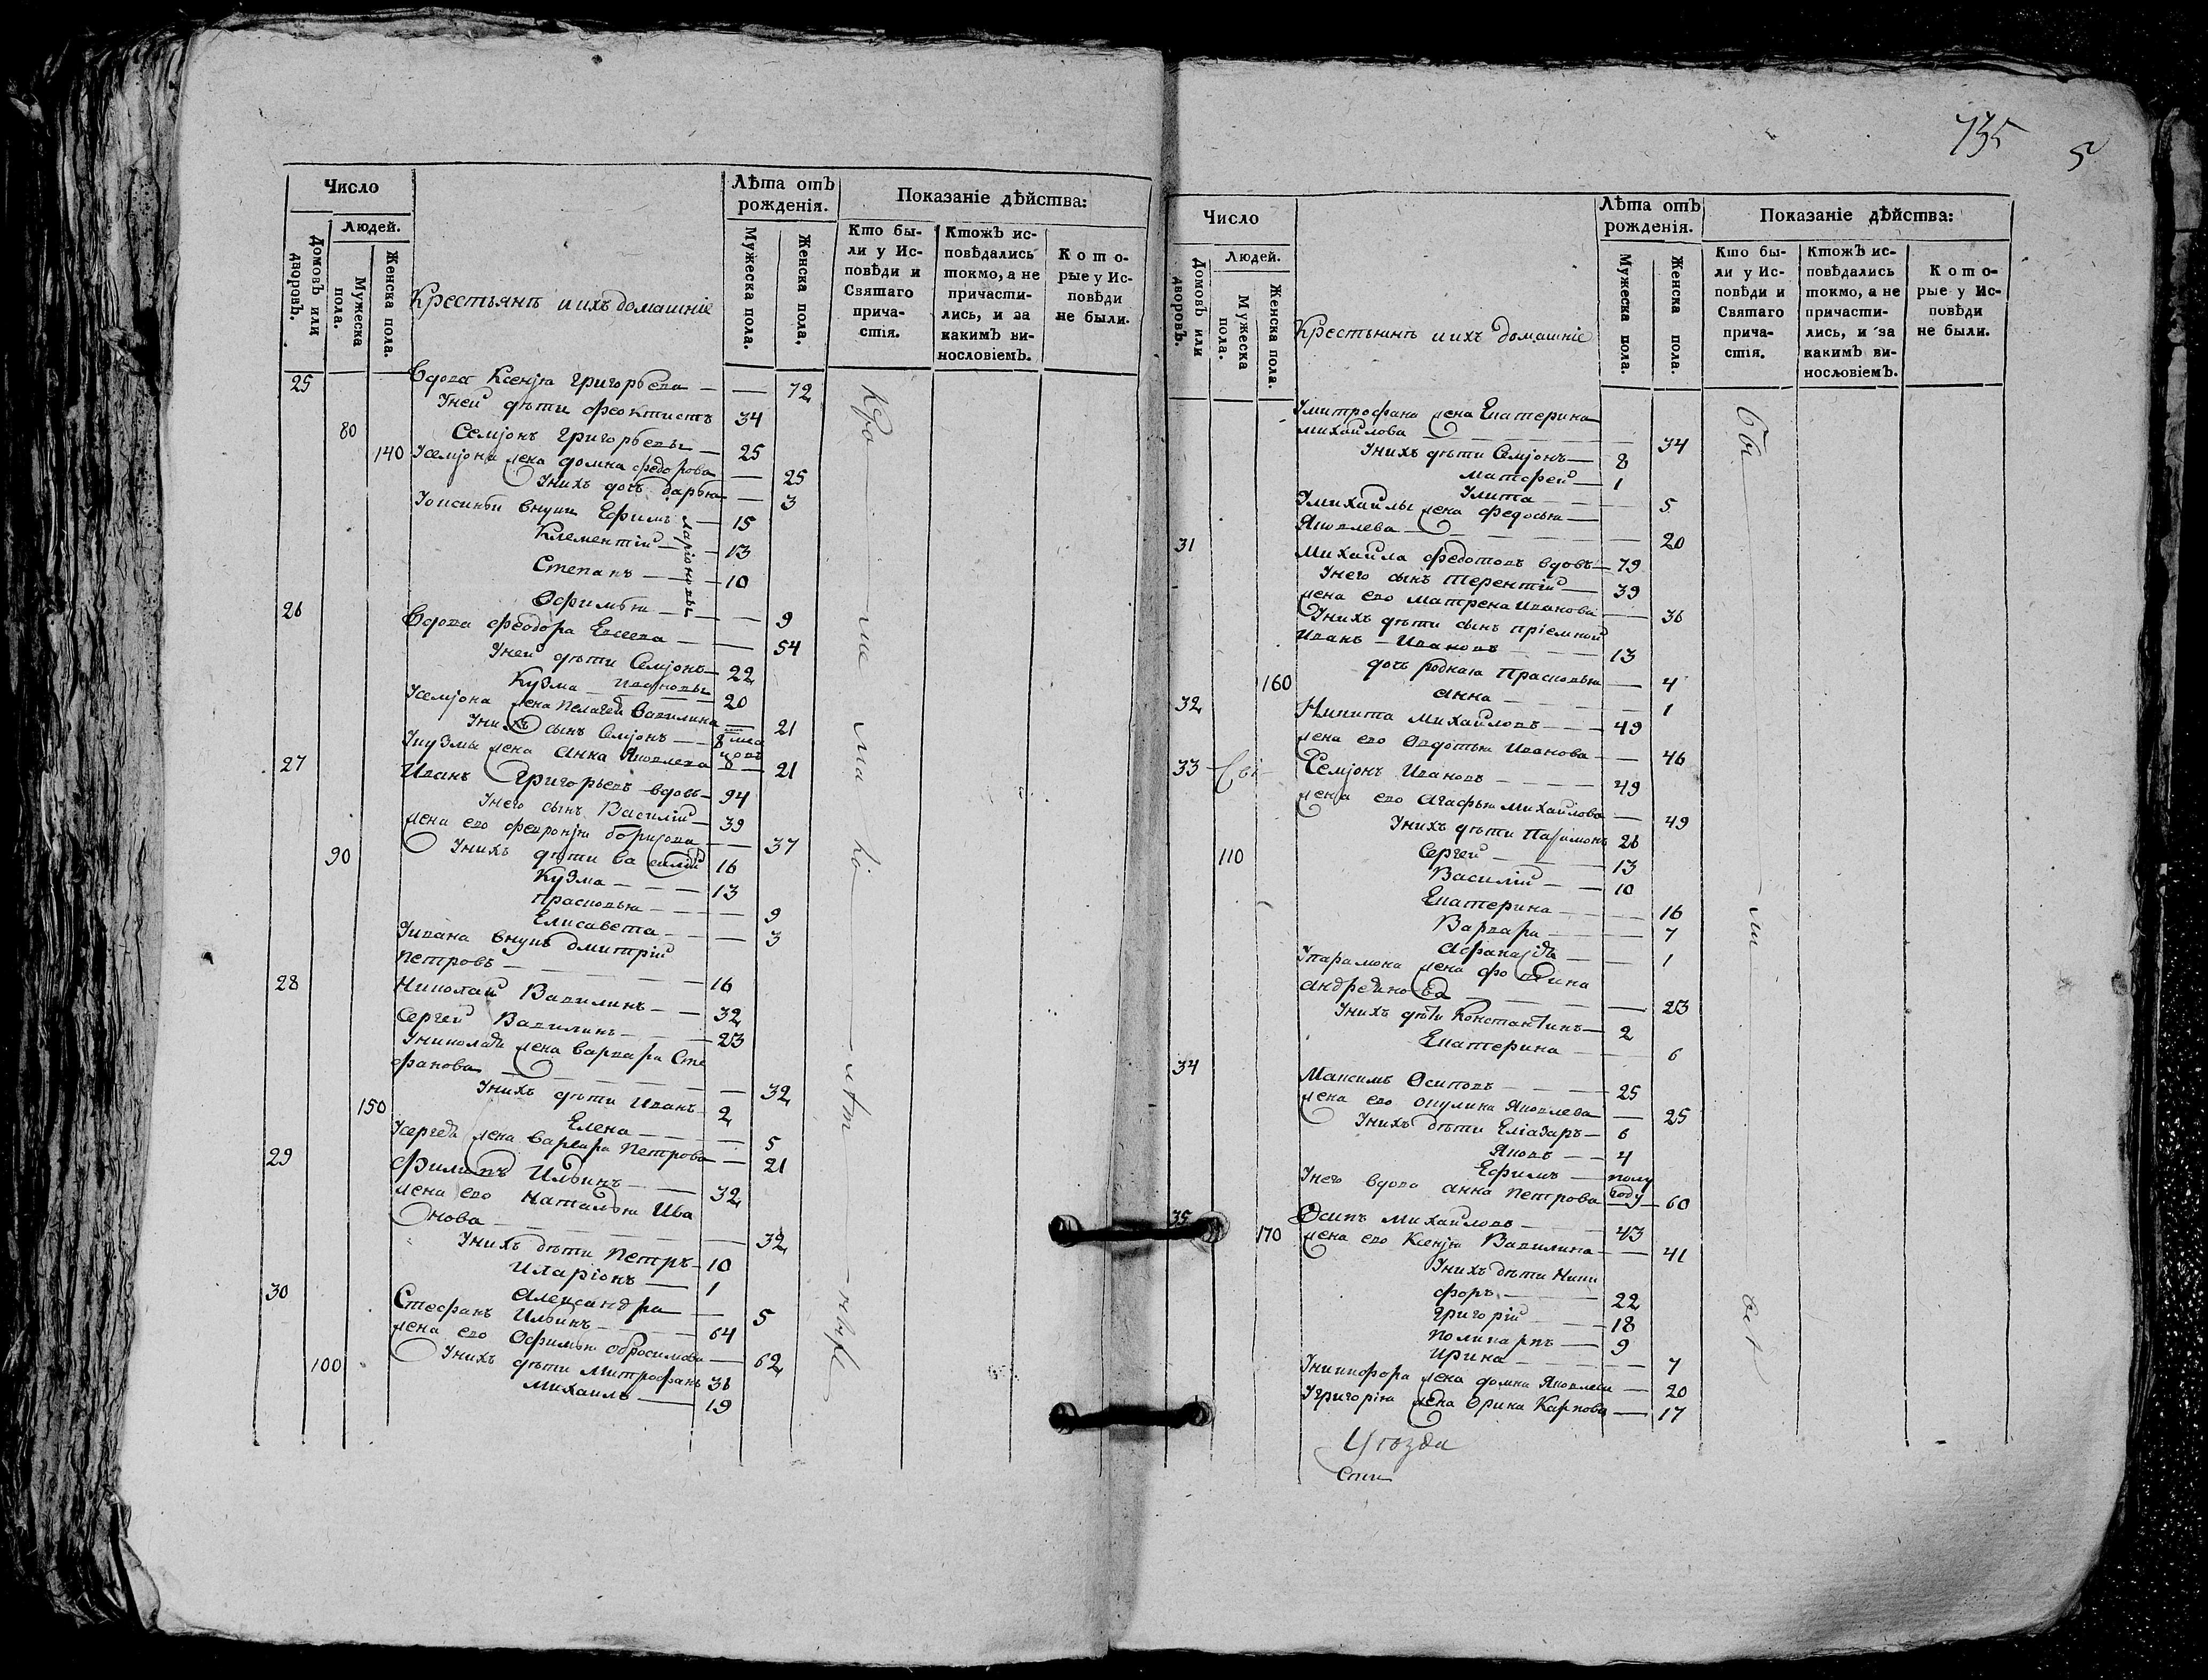 Число
Людей.
Домовъ или дворовъ.
Мужеска пола.
Женска пола.
Крестьянѣ и ихъ домашніе
Лѣта отъ рожденія.
Мужеска пола.
Женска пола.
Показаніе дѣйства:
Кто были у Исповѣди и Святаго причастія.
Ктожъ исповѣдались токмо, а не причастились, и за какимъ винословіемъ.
Которые у Исповѣди не были.
25 Вдова Ксенія Григорьева — — 72
Уней дѣти Феоктистъ 34
80 Семіонъ Григорьевы — 25
140 Усемiона жена домна федорова — 25
Унихъ дочь дарья — 3
Ефимъ — 15
Ларіоновы
Климентій — 13
Степанъ — — 10
Офимья — — 9
26 Вдова Феодора Евсеева — — 54
Уней дѣти Семіонъ — 22
Кузма Ивановы 20
Усемiона жена Пелагея Вавилина — 21
Унихъ сынъ Семіонъ —
Укузмы жена Анна Яковлева — 21
27 Иванъ Григорьевъ вдовъ — 94
Унего сынъ Василій — 39
жена ево Февронія борисова — 37
90 Унихъ дѣти Василій 16
Кузма — — — 13
Прасковья — — — 9
Елисавета — — — 3
Уивана внукъ дмитрій
Петровъ — — — 16
28 Николай Вавилинъ — — 32
Сергей Вавилинъ — — 23
Униколая жена варвара Сте
фанова — — — 32
Унихъ дѣти Иванъ 2
150 Елена — — — 5
Усергея жена варвара Петрова — 21
29 Филипъ Ильинъ — — 32
жена ево Наталья Ива
нова — — — 32
Унихъ дѣти Петръ — 10
Иларіонъ — 1
Александра — 5
30 Стефанъ Ильинъ — — 64
жена ево Офимья обросимова — 62
100 Унихъ дѣти Митрофанъ 36
Михаилъ — 19
735
5
Число
Людей.
Домовъ или дворовъ.
Мужеска пола.
Женска пола.
Крестьянѣ и ихъ домашніе
Лѣта отъ рожденія.
Мужеска пола.
Женска пола.
Показаніе дѣйства:
Кто были у Исповѣди и Святаго причастія.
Ктожъ исповѣдались токмо, а не причастились, и за какимъ винословіемъ.
Которые у Исповѣди не были.
Умитрофана жена Екатерина
Михайлова — — 34
Унихъ дѣти Семіонъ — 8
Матфей — 1
Улита — — 5
Умихайлы жена федосья
Яковлева — — 20
31 Михайла Федотовъ вдовъ — 79
Унего сынъ Терентій — 39
жена ево Матрена Иванова — 36
Унихъ дѣти сынъ пріемной
Иванъ — Ивановъ — 13
дочь родная Прасковья — 4
160 анна — — 1
32 Никита Михайловъ — — 49
жена ево Овдотья Иванова — 46
33 Семіонъ Ивановъ — — 49
жена ево Агафья Михайлова — 49
Унихъ дѣти Парамонъ 26
110 Сергей — — 13
Василій — — 10
Екатерина — — 16
Варвара — — 7
— — 1
Упарамона жена
— — 23
Унихъ дѣти Константинъ — 2
Екатерина — — 6
34 Максимъ Осиповъ — — 25
жена ево окулина Яковлева — 25
Унихъ дѣти Еліазаръ — 6
Яковъ — — 4
Ефимъ — полу
году
Унего вдова анна Петрова — 60
35 Осипъ Михайловъ — — 43
170 жена ево Ксенія Вавилина — 41
Унихъ дѣти Ники
форъ — — 22
Григорій — 18
Поликарпъ — 9
Ирина — — 7
Уникифора жена домна Яковлева — 20
Угригорія жена Орина Карпова — 17
Уѣзда